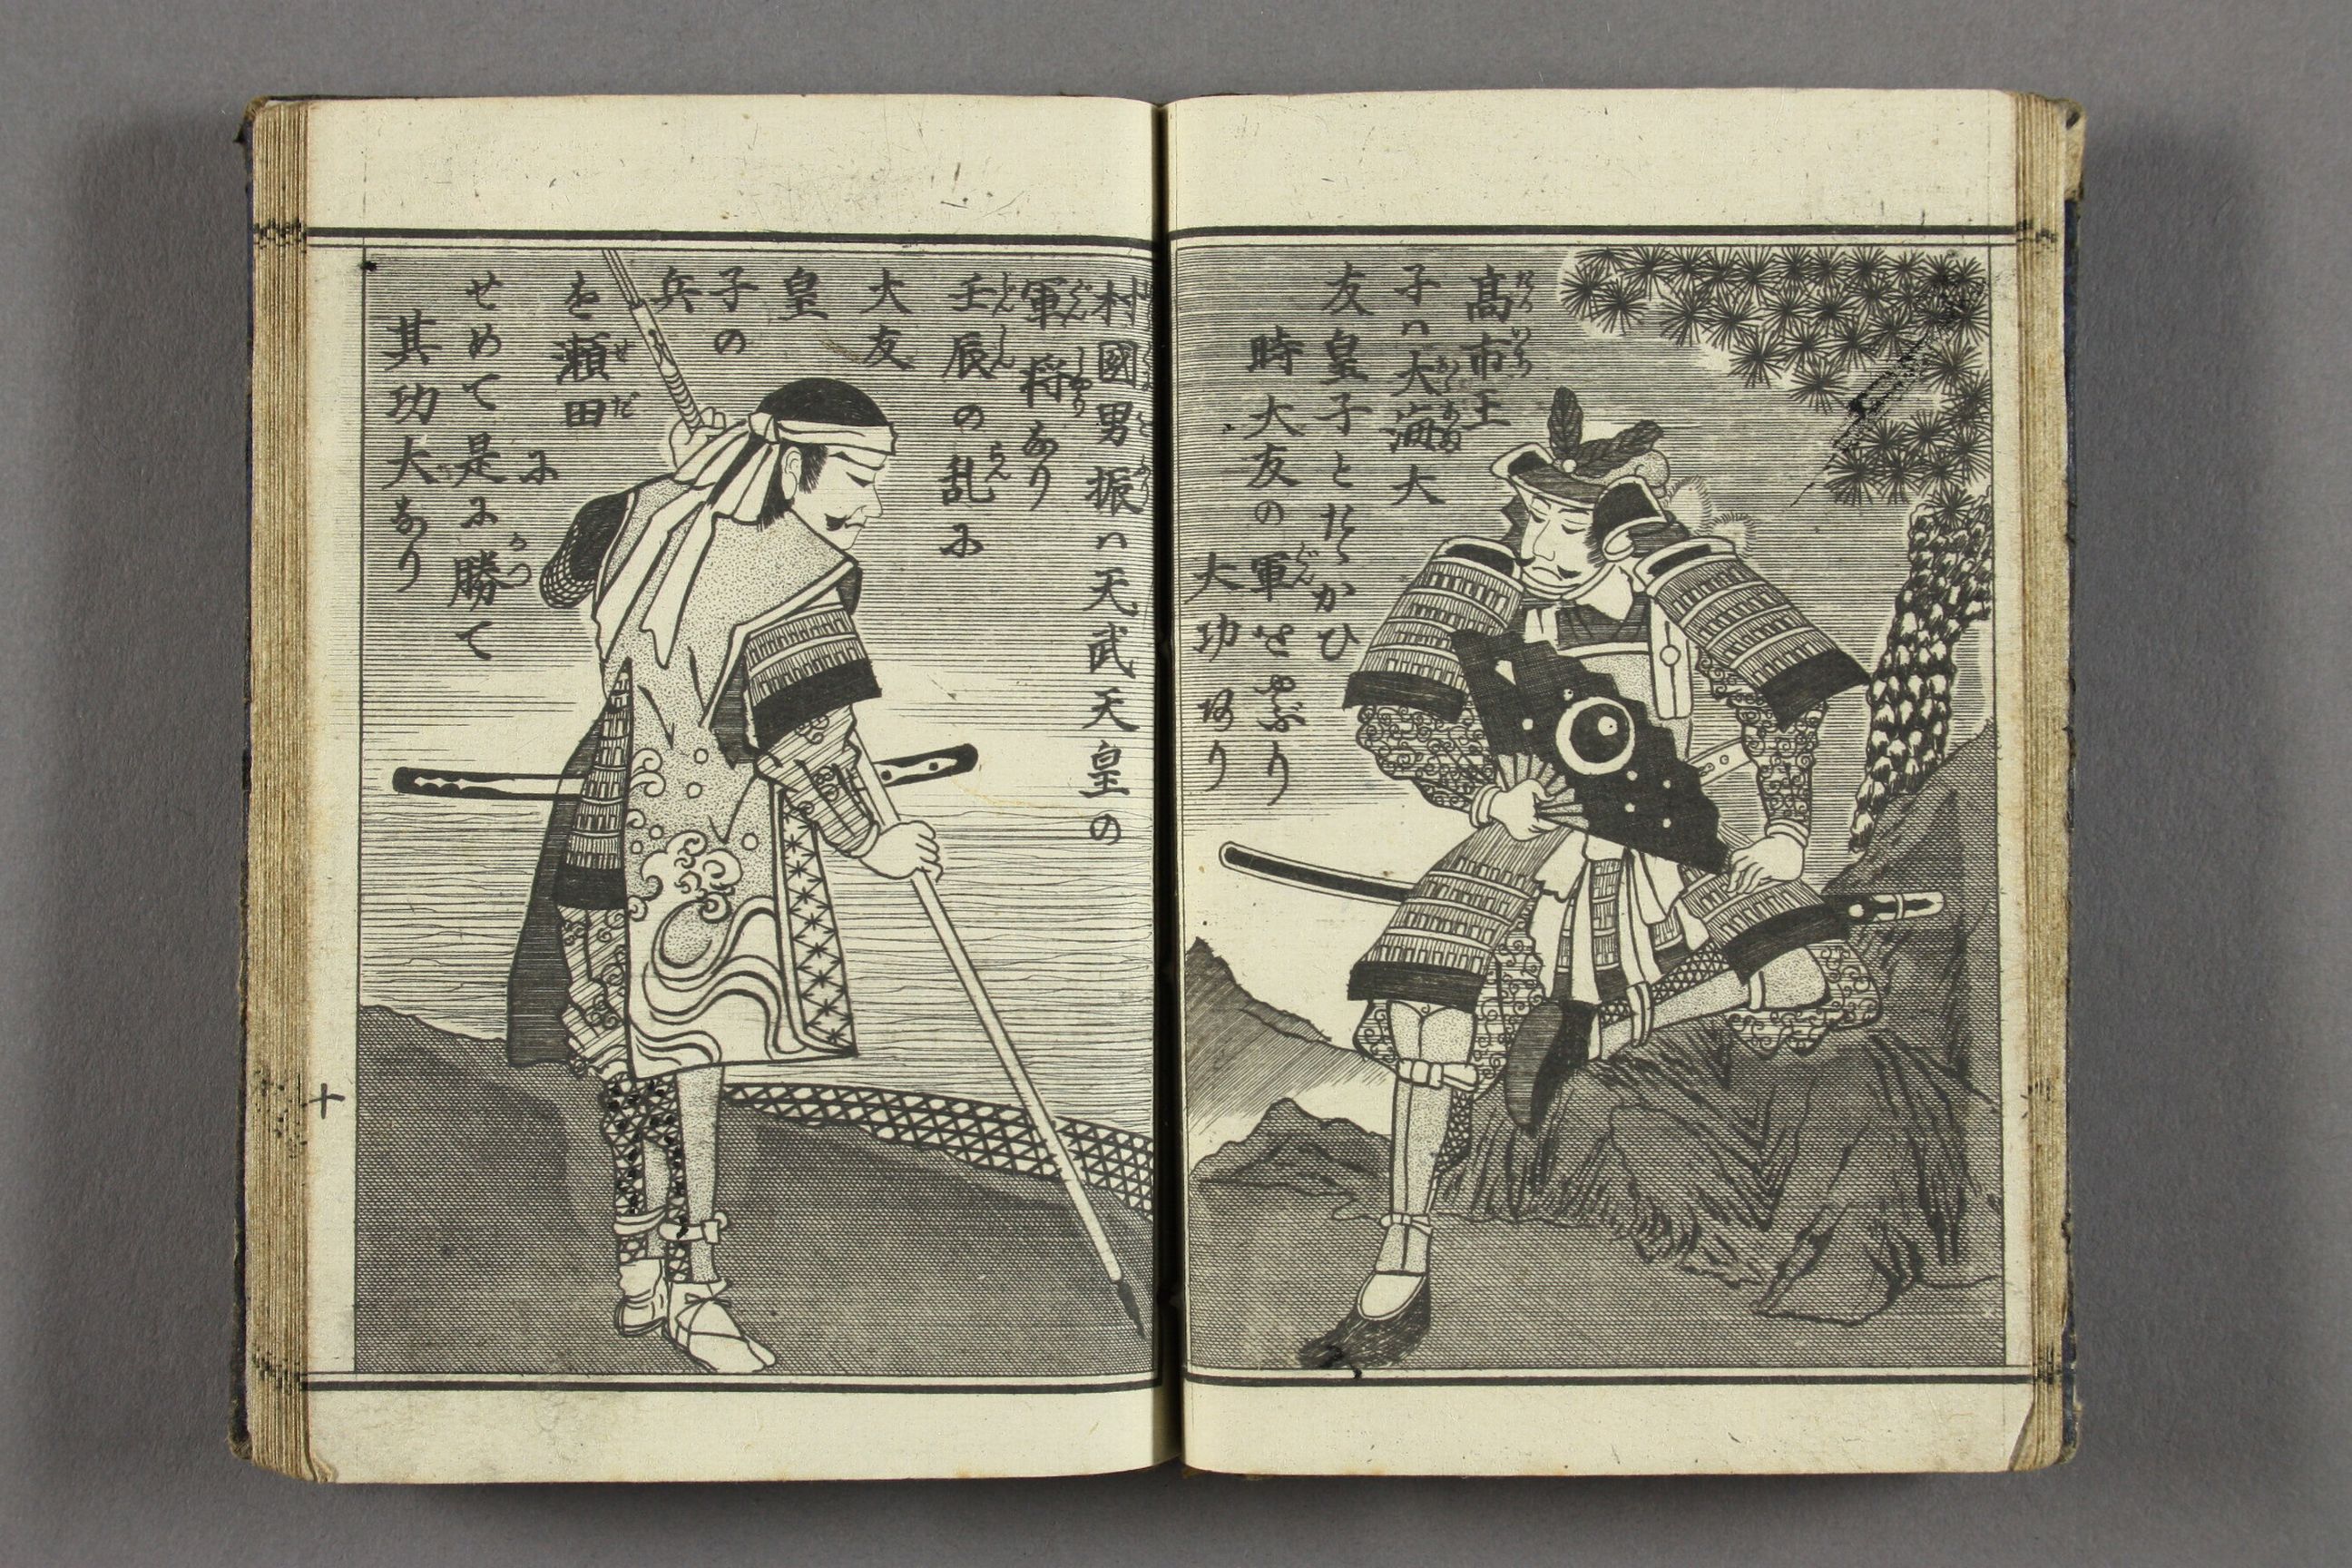 高市王
子ハ大海大
友皇子とたゝかひ
時大友の軍をやぶり
大功あり
村國男振ハ天武天皇の
軍将なり
壬辰の乱に
大友
皇
子の
兵
を瀬田
に
せめて是に勝て
其功大なり
十